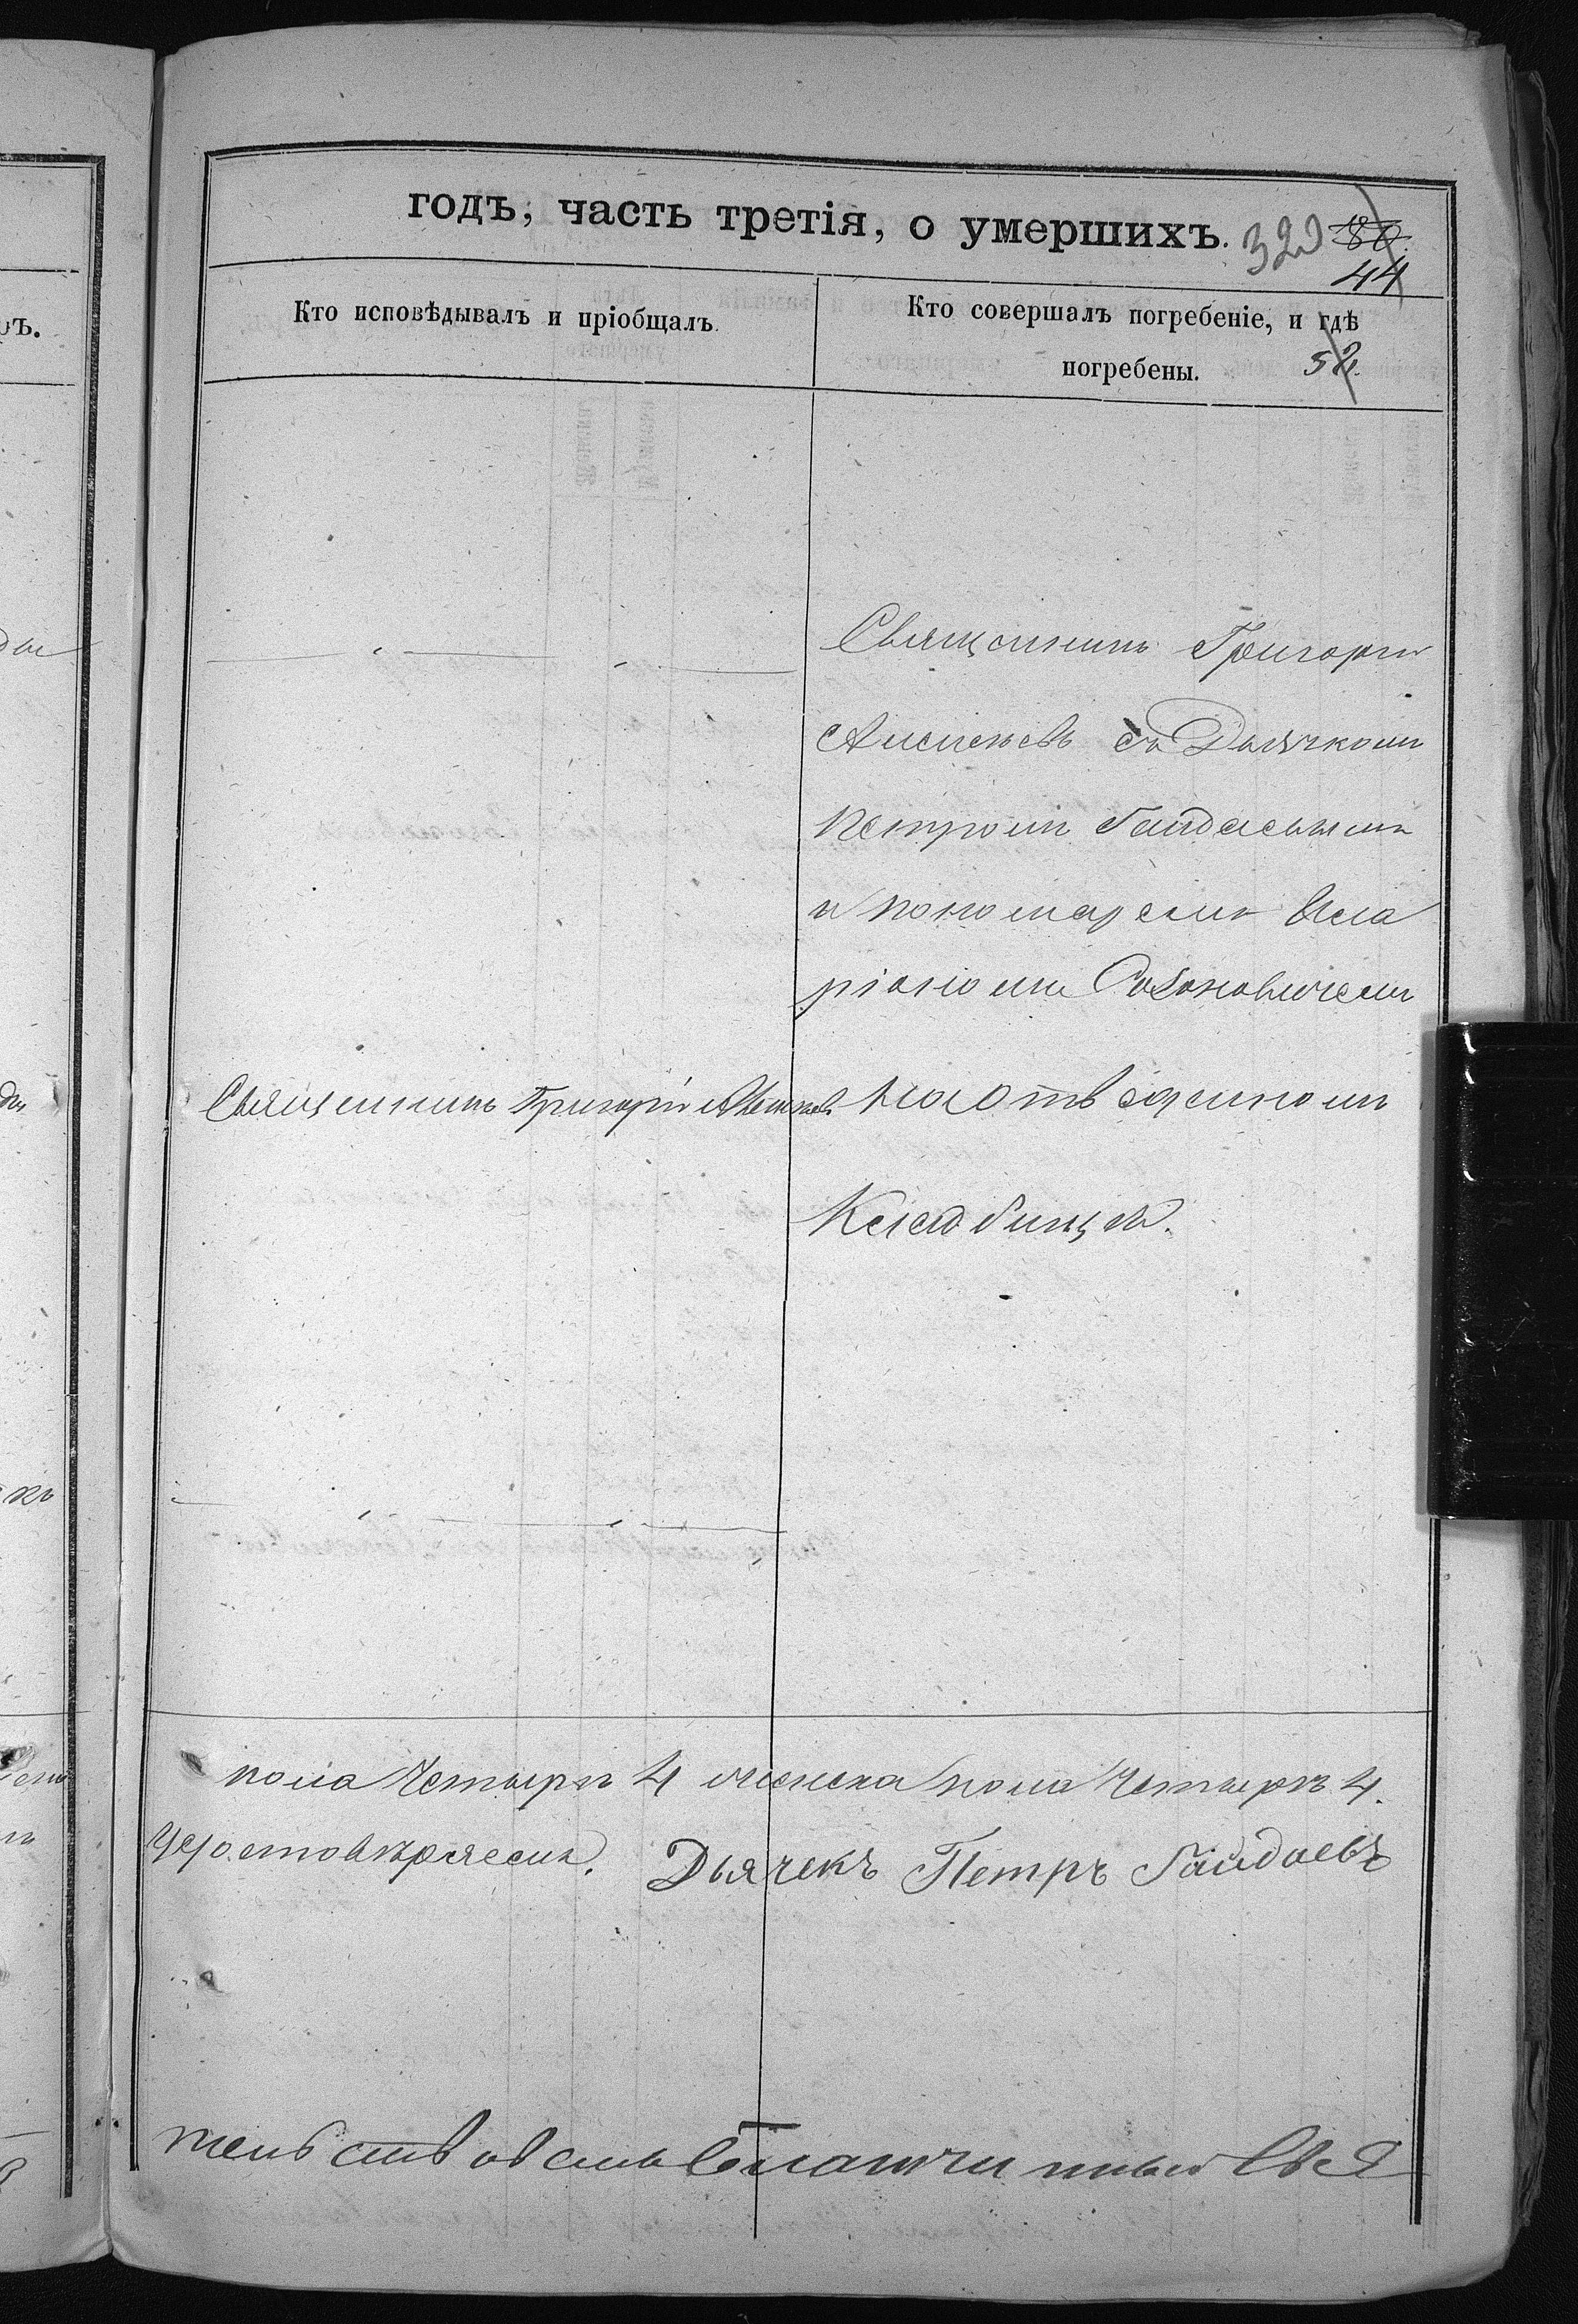 годъ, часть третія, о умершихъ.
320
80
44
Кто исповѣдывалъ и пріобщалъ
Кто совершалъ погребеніе, и гдѣ
погребены.
52
Священникъ Григорій
съ Дьячкомъ
Петромъ Гайдаевымъ
и пономаремъ Ила
ріономъ
Священникъ Григорій
на отведенномъ
Кладбищѣ.
пола Четыре 4 женска пола Четыре 4.
Дьячекъ Петръ Гайдаевъ
тельствовалъ Благочинный Свя